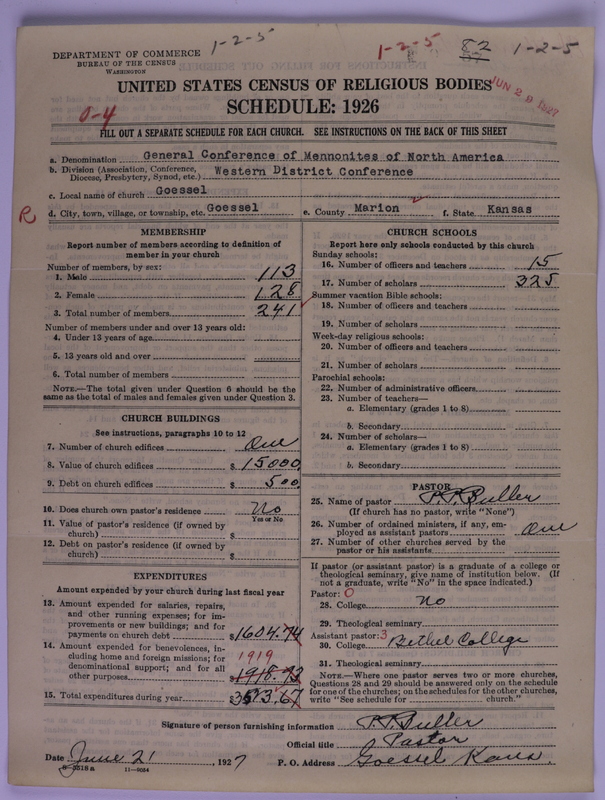 1-2-5 1-2-5 82 1-2-5
DEPARTMENT OF COMMERCE
BUREAU OF THE CENSUS
WASHINGTON
UNITED STATES CENSUS OF RELIGIOUS BODIES
JUN 29 1927
SCHEDULE: 1926
0-4
FILL OUT A SEPARATE SCHEDULE FOR EACH CHURCH. SEE INSTRUCTIONS ON THE BACK OF THIS SHEET
a. Denomination General Conference of Mennonites of North America
b. Division (Association, Conference, Diocese, Presbytery, Synod, etc.) Western District Conference
c. Local name of church Goessel
R d. City, town, village, or township, etc. Goessel e. County Marion f. State Kansas
MEMBERSHIP
Report number of members according to definition of
member in your church
Number of members, by sex:
1. Male 113
2. Female 128
3. Total number of members 241
Number of members under and over 13 years old:
4. Under 13 years of age
5. 13 years old and over
6. Total number of members
NOTE.—The total given under Question 6 should be the
same as the total of males and females given under Question 3.
CHURCH BUILDINGS
See instructions, paragraphs 10 to 12
7. Number of church edifices One
8. Value of church edifices $ 15000
9. Debt on church edifices $ 500
10. Does church own pastor's residence No
Yes or No
11. Value of pastor's residence (if owned by
church) $
12. Debt on pastor's residence (if owned by
church) $
EXPENDITURES
Amount expended by your church during last fiscal year
13. Amount expended for salaries, repairs,
and other running expenses; for im-
provements or new buildings; and for
payments on church debt $ 1604.74
14. Amount expended for benevolences, in-
cluding home and foreign missions; for
denominational support; and for all 1919
other purposes 1918.93
15. Total expenditures during year 3523.67
CHURCH SCHOOLS
Report here only schools conducted by this church
Sunday schools:
16. Number of officers and teachers 15
17. Number of scholars 325
Summer vacation Bible schools:
18. Number of officers and teachers
19. Number of scholars
Week-day religious schools:
20. Number of officers and teachers
21. Number of scholars
Parochial schools:
22. Number of administrative officers
23. Number of teachers—
a. Elementary (grades 1 to 8)
b. Secondary
24. Number of scholars—
a. Elementary (grades 1 to 8)
b. Secondary
PASTOR
25. Name of pastor P.P. Buller
(If church has no pastor, write "None")
26. Number of ordained ministers, if any, em-
ployed as assistant pastors One
27. Number of other churches served by the
pastor or his assistants
If pastor (or assistant pastor) is a graduate of a college or
theological seminary, give name of institution below. (If
not a graduate, write "No" in the space indicated.)
Pastor: 0
28. College No
29. Theological seminary
Assistant pastor: 3
30. College Bethel College
31. Theological seminary
NOTE.—Where one pastor serves two or more churches,
Questions 28 and 29 should be answered only on the schedule
for one of the churches; on the schedules for the other churches,
write "See schedule for church."
Signature of person furnishing information P.P. Buller
Official title Pastor
Date June 21, 1927 P. O. Address Goessel Kans.
8-5518a 11-9034